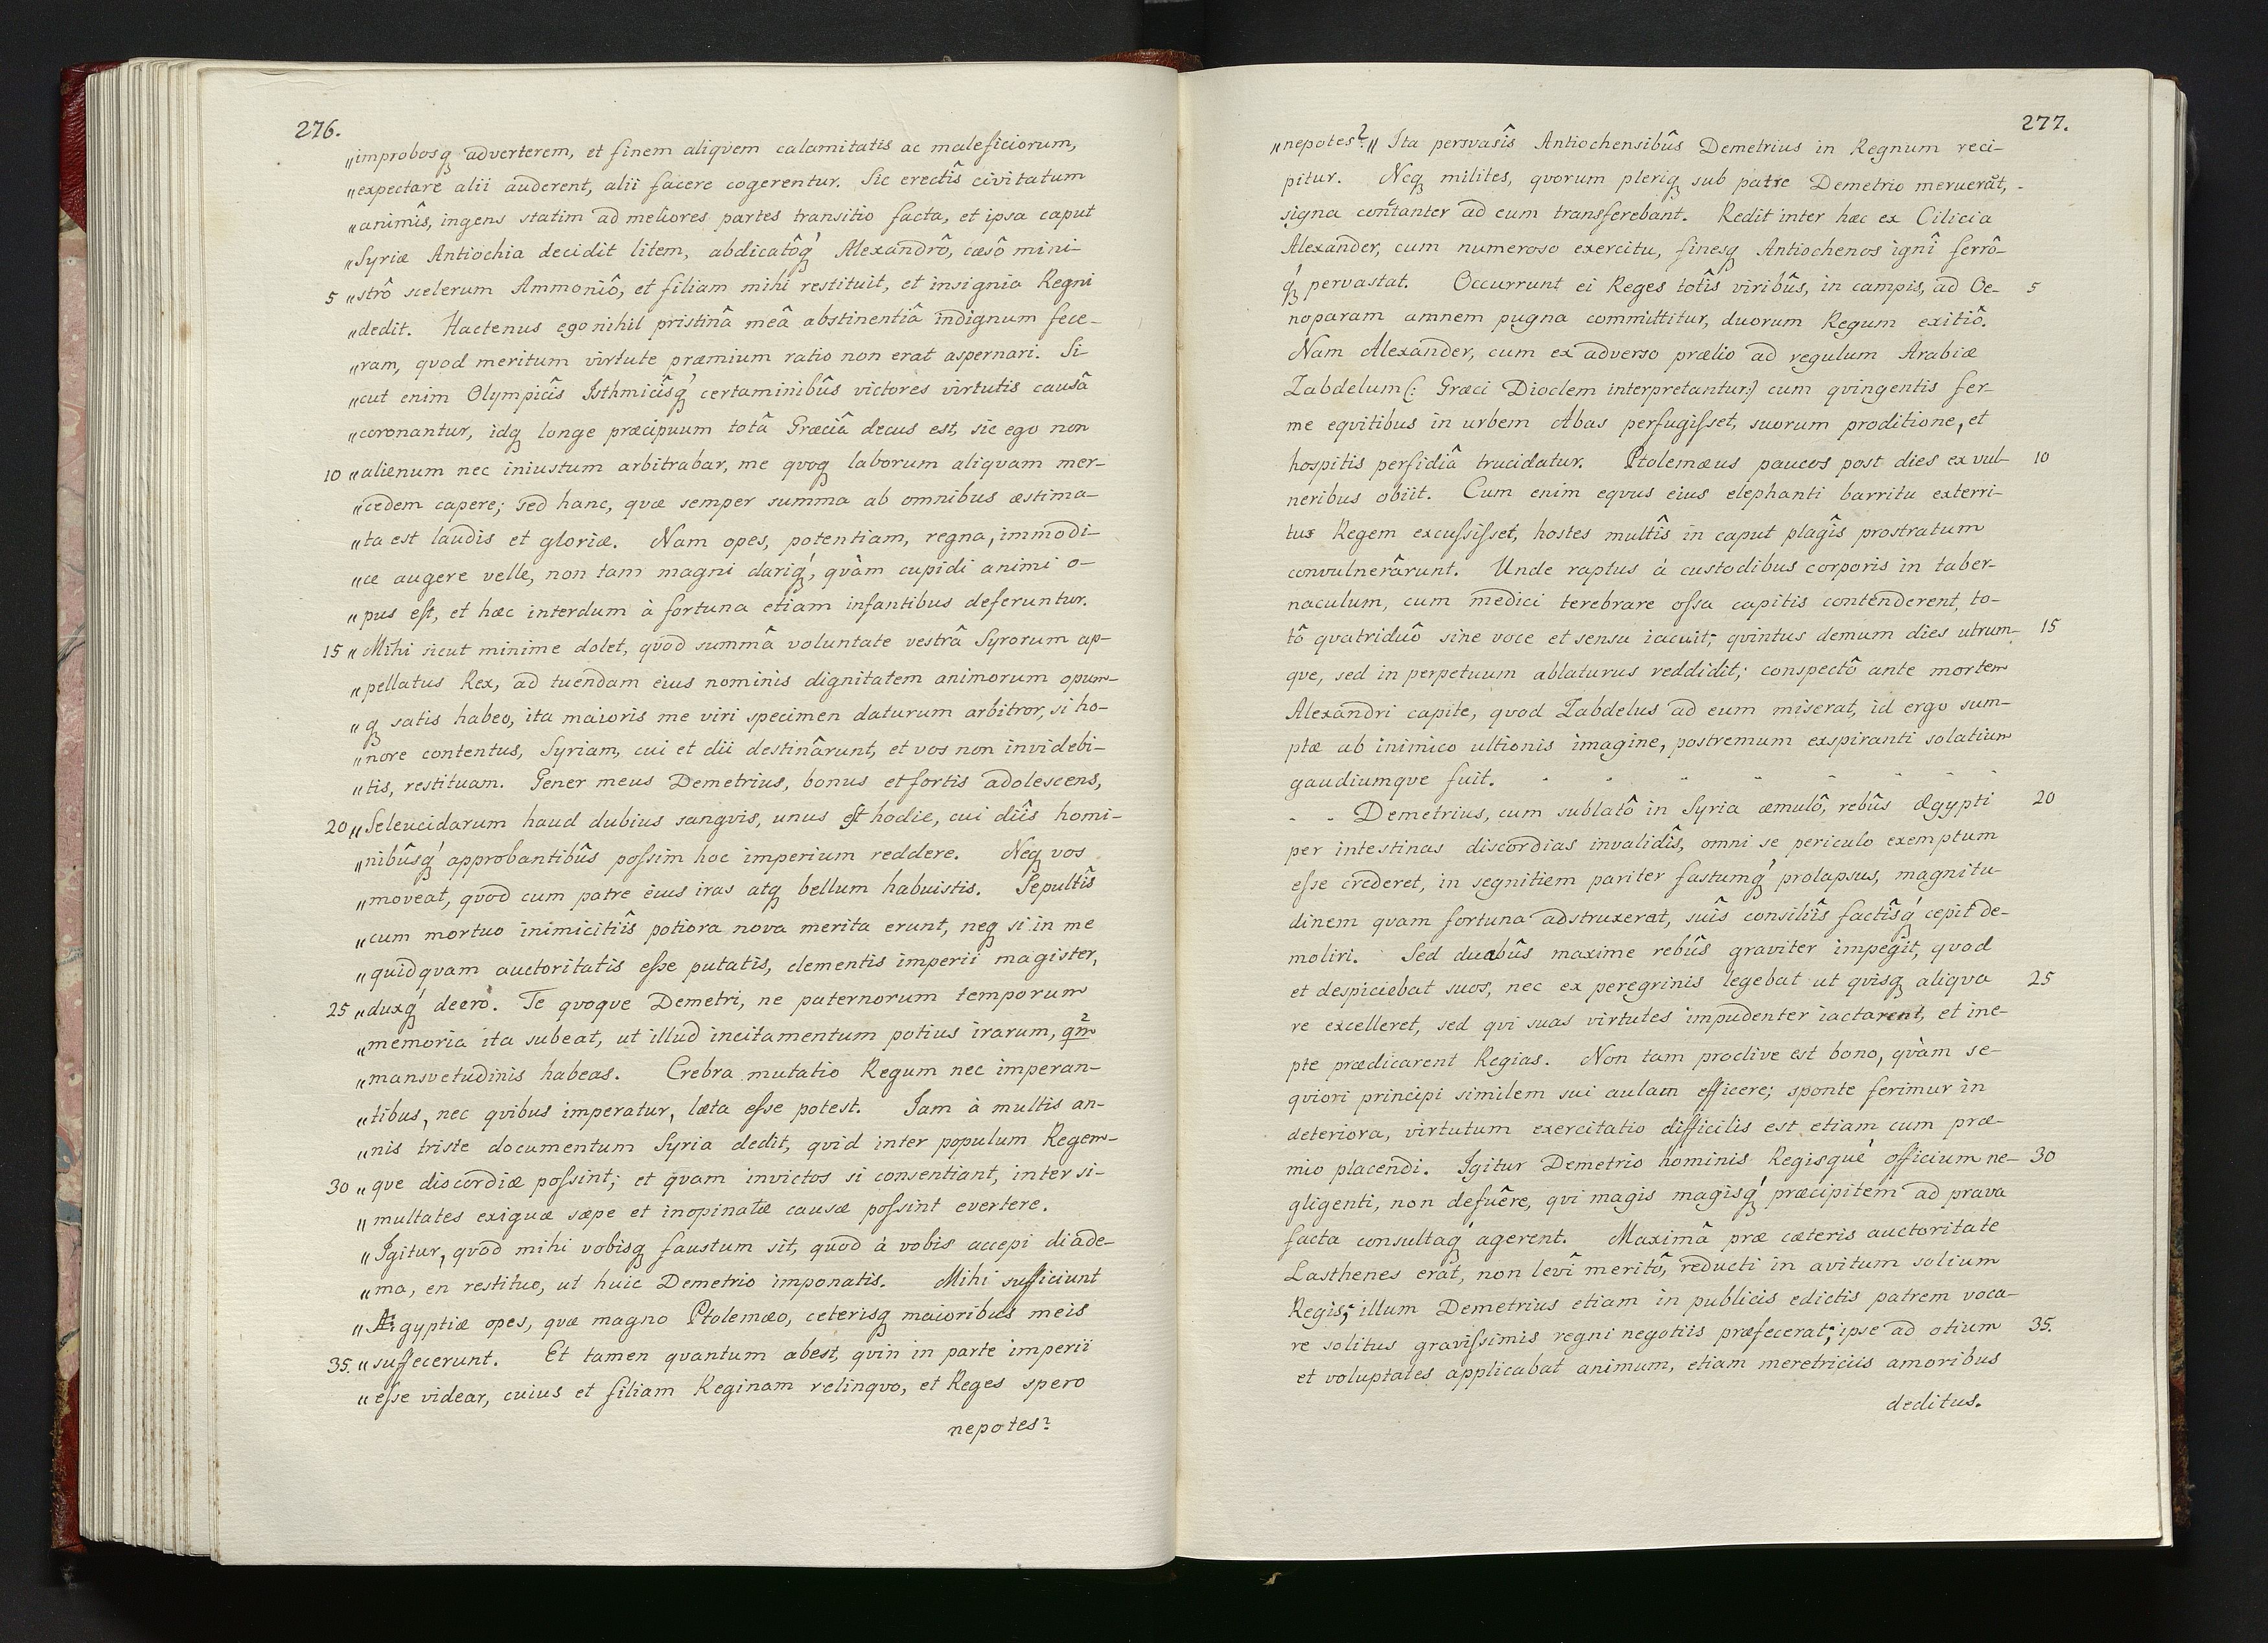 276.
„improbosq̃ adverterem, et finem aliqvem calamitatis ac maleficiorum,
„expectare alii auderent, alii facere cogerentur. Sic erectîs civitatum
„animîs, ingens statim ad meliores partes transitio facta, et ipsa caput
„Syriæ Antiochia decidit litem, abdicatôq́; Alexandrô, cæsô mini-
5 „strô scelerum Ammoniô, et filiam mihi restituit, et insignia Regni
„dedit. Hactenus ego nihil pristinâ meâ abstinentiâ indignum fece-
„ram, qvod meritum virtute præmium ratio non erat aspernari. Si-
„cut enim Olympicîs Isthmicîsq́; certaminibûs victores virtutis causâ
„coronantur, idq; longe præcipuum totâ Græciâ decus est, sic ego non
10 „alienum nec iniustum arbitrabar, me qvoq; laborum aliqvam mer-
„cedem capere; sed hanc, qvæ semper summa ab omnibus æstima-
„ta est laudis et gloriæ. Nam opes, potentiam, regna, immodi-
„ce augere velle, non tam magni dariq́;, qvàm cupidi animi o-
„pus est, et hæc interdum à fortuna etiam infantibus deferuntur.
15 „Mihi sicut minime dolet, qvod summâ voluntate vestrâ Syrorum ap-
„pellatus Rex, ad tuendam eius nominis dignitatem animorum opum-
„q; satis habeo, ita maioris me viri specimen daturum arbitror, si ho-
„nore contentus, Syriam, cui et dii destinârunt, et vos non invidebi-
„tis, restituam. Gener meus Demetrius, bonus et fortis adolescens,
20 „Seleucidarum haud dubius sangvis, unus est hodie, cui diîs homi-
„nibûsq́; approbantibûs possim hoc imperium reddere. Neq; vos
„moveat, qvod cum patre eius iras atq; bellum habuistis. Sepultîs
„cum mortuo inimicitiîs potiora nova merita erunt, neq; si in me
„quidqvam auctoritatis esse putatis, clementis imperii magister,
25 „duxq́; deero. Te qvoqve Demetri, ne paternorum temporum
„memoria ita subeat, ut illud incitamentum potius irarum, qm̃
„mansvetudinis habeas. Crebra mutatio Regum nec imperan-
„tibus, nec qvibus imperatur, læta esse potest. Iam à multis an-
„nis triste documentum Syria dedit, qvid inter populum Regem-
30 „qve discordiæ possint; et qvam invictos si consentiant, inter si-
„multates exiguæ sæpe et inopinatæ causæ possint evertere.
„Igitur, qvod mihi vobisq; faustum sit, qvod à vobis accepi diade-
„ma, en restituo, ut huic Demetrio imponatis. Mihi sufficiunt
„Ægyptiæ opes, qvæ magno Ptolemæo, ceterisq; maioribus meis
35. „suffecerunt. Et tamen qvantum abest, qvin in parte imperii
„esse videar, cuius et filiam Reginam relinqvo, et Reges spero
nepotes?
277.
„nepotes?„ Ita persvasîs Antiochensibûs Demetrius in Regnum reci-
pitur. Neq; milites, qvorum pleriq; sub patre Demetrio meruerãt, -
signa certanter ad eum transferebant. Redit inter hæc ex Cilicia
Alexander, cum numeroso exercitu, finesq; Antiochenos ignî ferrô-
q́; pervastat. Occurrunt ei Reges totîs viribûs, in campis, ad Oe- 5
noparam amnem pugna committitur, duorum Regum exitiô.
Nam Alexander, cum ex adverso prælio ad regulum Arabiæ
Zabdelum (: Græci Dioclem interpretantur:) cum qvingentis fer-
me eqvitibus in urbem Abas perfugisset, suorum proditione, et
hospitis perfidiâ trucidatur. Ptolemæus paucos post dies ex vul- 10
neribus obiit. Cum enim eqvus eius elephanti barritu exterri-
tus Regem excussisset, hostes multîs in caput plagîs prostratum
convulnerârunt. Unde raptus à custodibus corporis in taber-
naculum, cum medici terebrare ossa capitis contenderent, to-
tô qvatriduô sine voce et sensu iacuit; qvintus demum dies utrum- 15
qve, sed in perpetuum ablaturus reddidit; conspectô ante mortem
Alexandri capite, qvod Zabdelus ad eum miserat, id ergo sum-
ptæ ab inimico ultionis imagine, postremum exspiranti solatium
gaudiumqve fuit. - - - - - - -
- - Demetrius, cum sublatô in Syria æmulô, rebûs Ægypti 20
per intestinas discordias invalidîs, omni se periculo exemptum
esse crederet, in segnitiem pariter fastumq́; prolapsus, magnitu-
dinem qvam fortuna adstruxerat, suîs consiliîs factîsq́; cepit de-
moliri. Sed duabûs maxime rebûs graviter impegit, qvod
et despiciebat suos, nec ex peregrinis legebat ut qvisq; aliqva 25
re excelleret, sed qvi suas virtutes impudenter iactarent, et ine-
pte prædicarent Regias. Non tam proclive est bono, qvàm se-
qviori principi similem sui aulam efficere; sponte ferimur in
deteriora, virtutum exercitatio difficilis est etiam cum præ-
mio placendi. Igitur Demetrio hominis Regisqué officium ne- 30
gligenti, non defuêre, qvi magis magisq́; præcipitem ad prava
facta consultaq́; agerent. Maximâ præ cæteris auctoritate
Lasthenes erat, non levî meritô, reducti in avitum solium
Regis; illum Demetrius etiam in publicis edictis patrem voca-
re solitus gravissimis regni negotiis præfecerat; ipse ad otium 35.
et voluptates applicabat animum, etiam meretriciis amoribus
deditus.